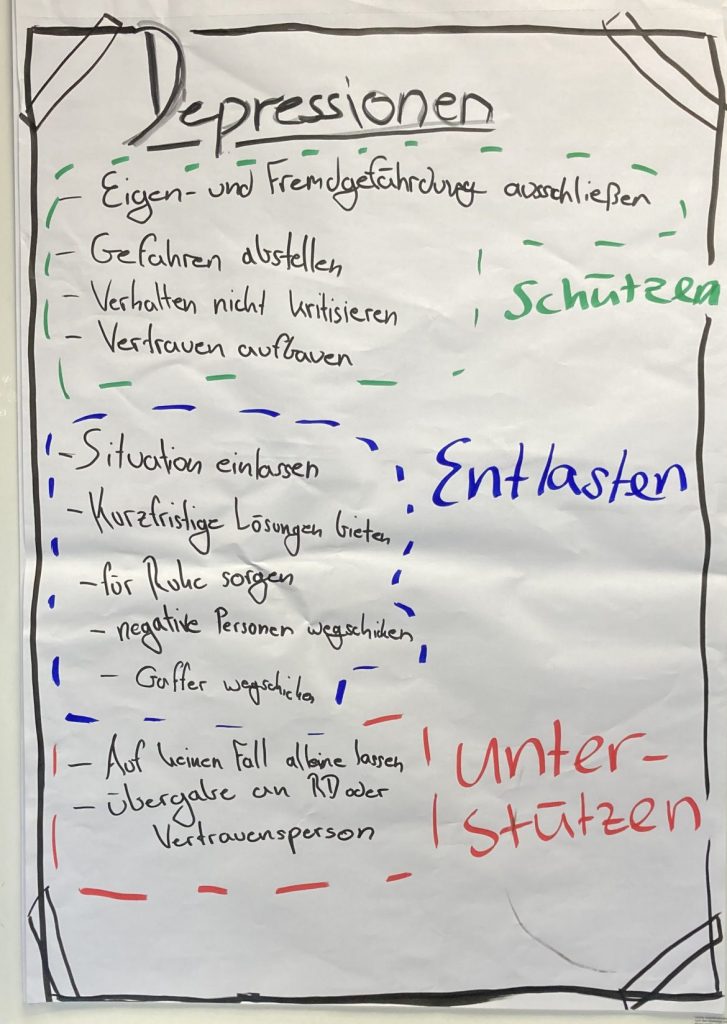 Depressionen
- Eigen- und Fremdgefährdung ausschließen
- Gefahren abstellen
- Verhalten nicht kritisieren
- Vertrauen aufbauen
Schützen
- Situation einlassen
- Kurzfristige Lösungen bieten
- für Ruhe sorgen
- negative Personen wegschicken
- Gaffer wegschicken
Entlasten
- Auf keinen Fall alleine lassen
- Übergabe an RD oder
Vertrauensperson
Unter-
stützen